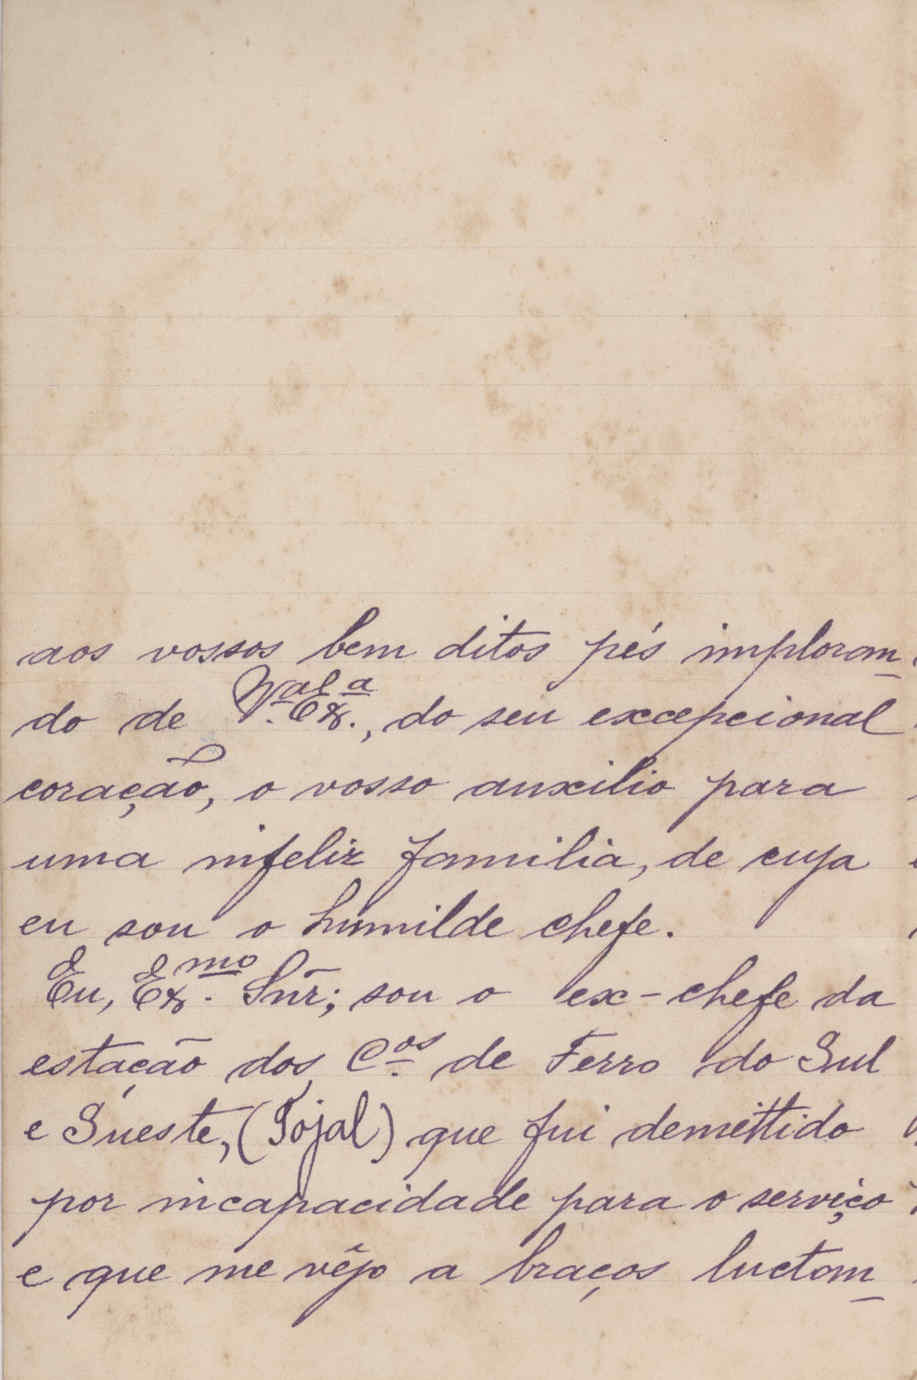 aos vossos bem ditos pés imploran-
do de V.ª Ex.ª, do seu excepcional
coração, o vosso auxilio para
uma infeliz familia, de cuja
eu sou o humilde chefe.
Eu, Ex.mo Snr̃; sou o ex-chefe da
estação dos C.os de Ferro do Sul
e Sueste, (Tojal) que fui demettido
por incapacidade para o serviço
e que me vêjo a braços luctan-